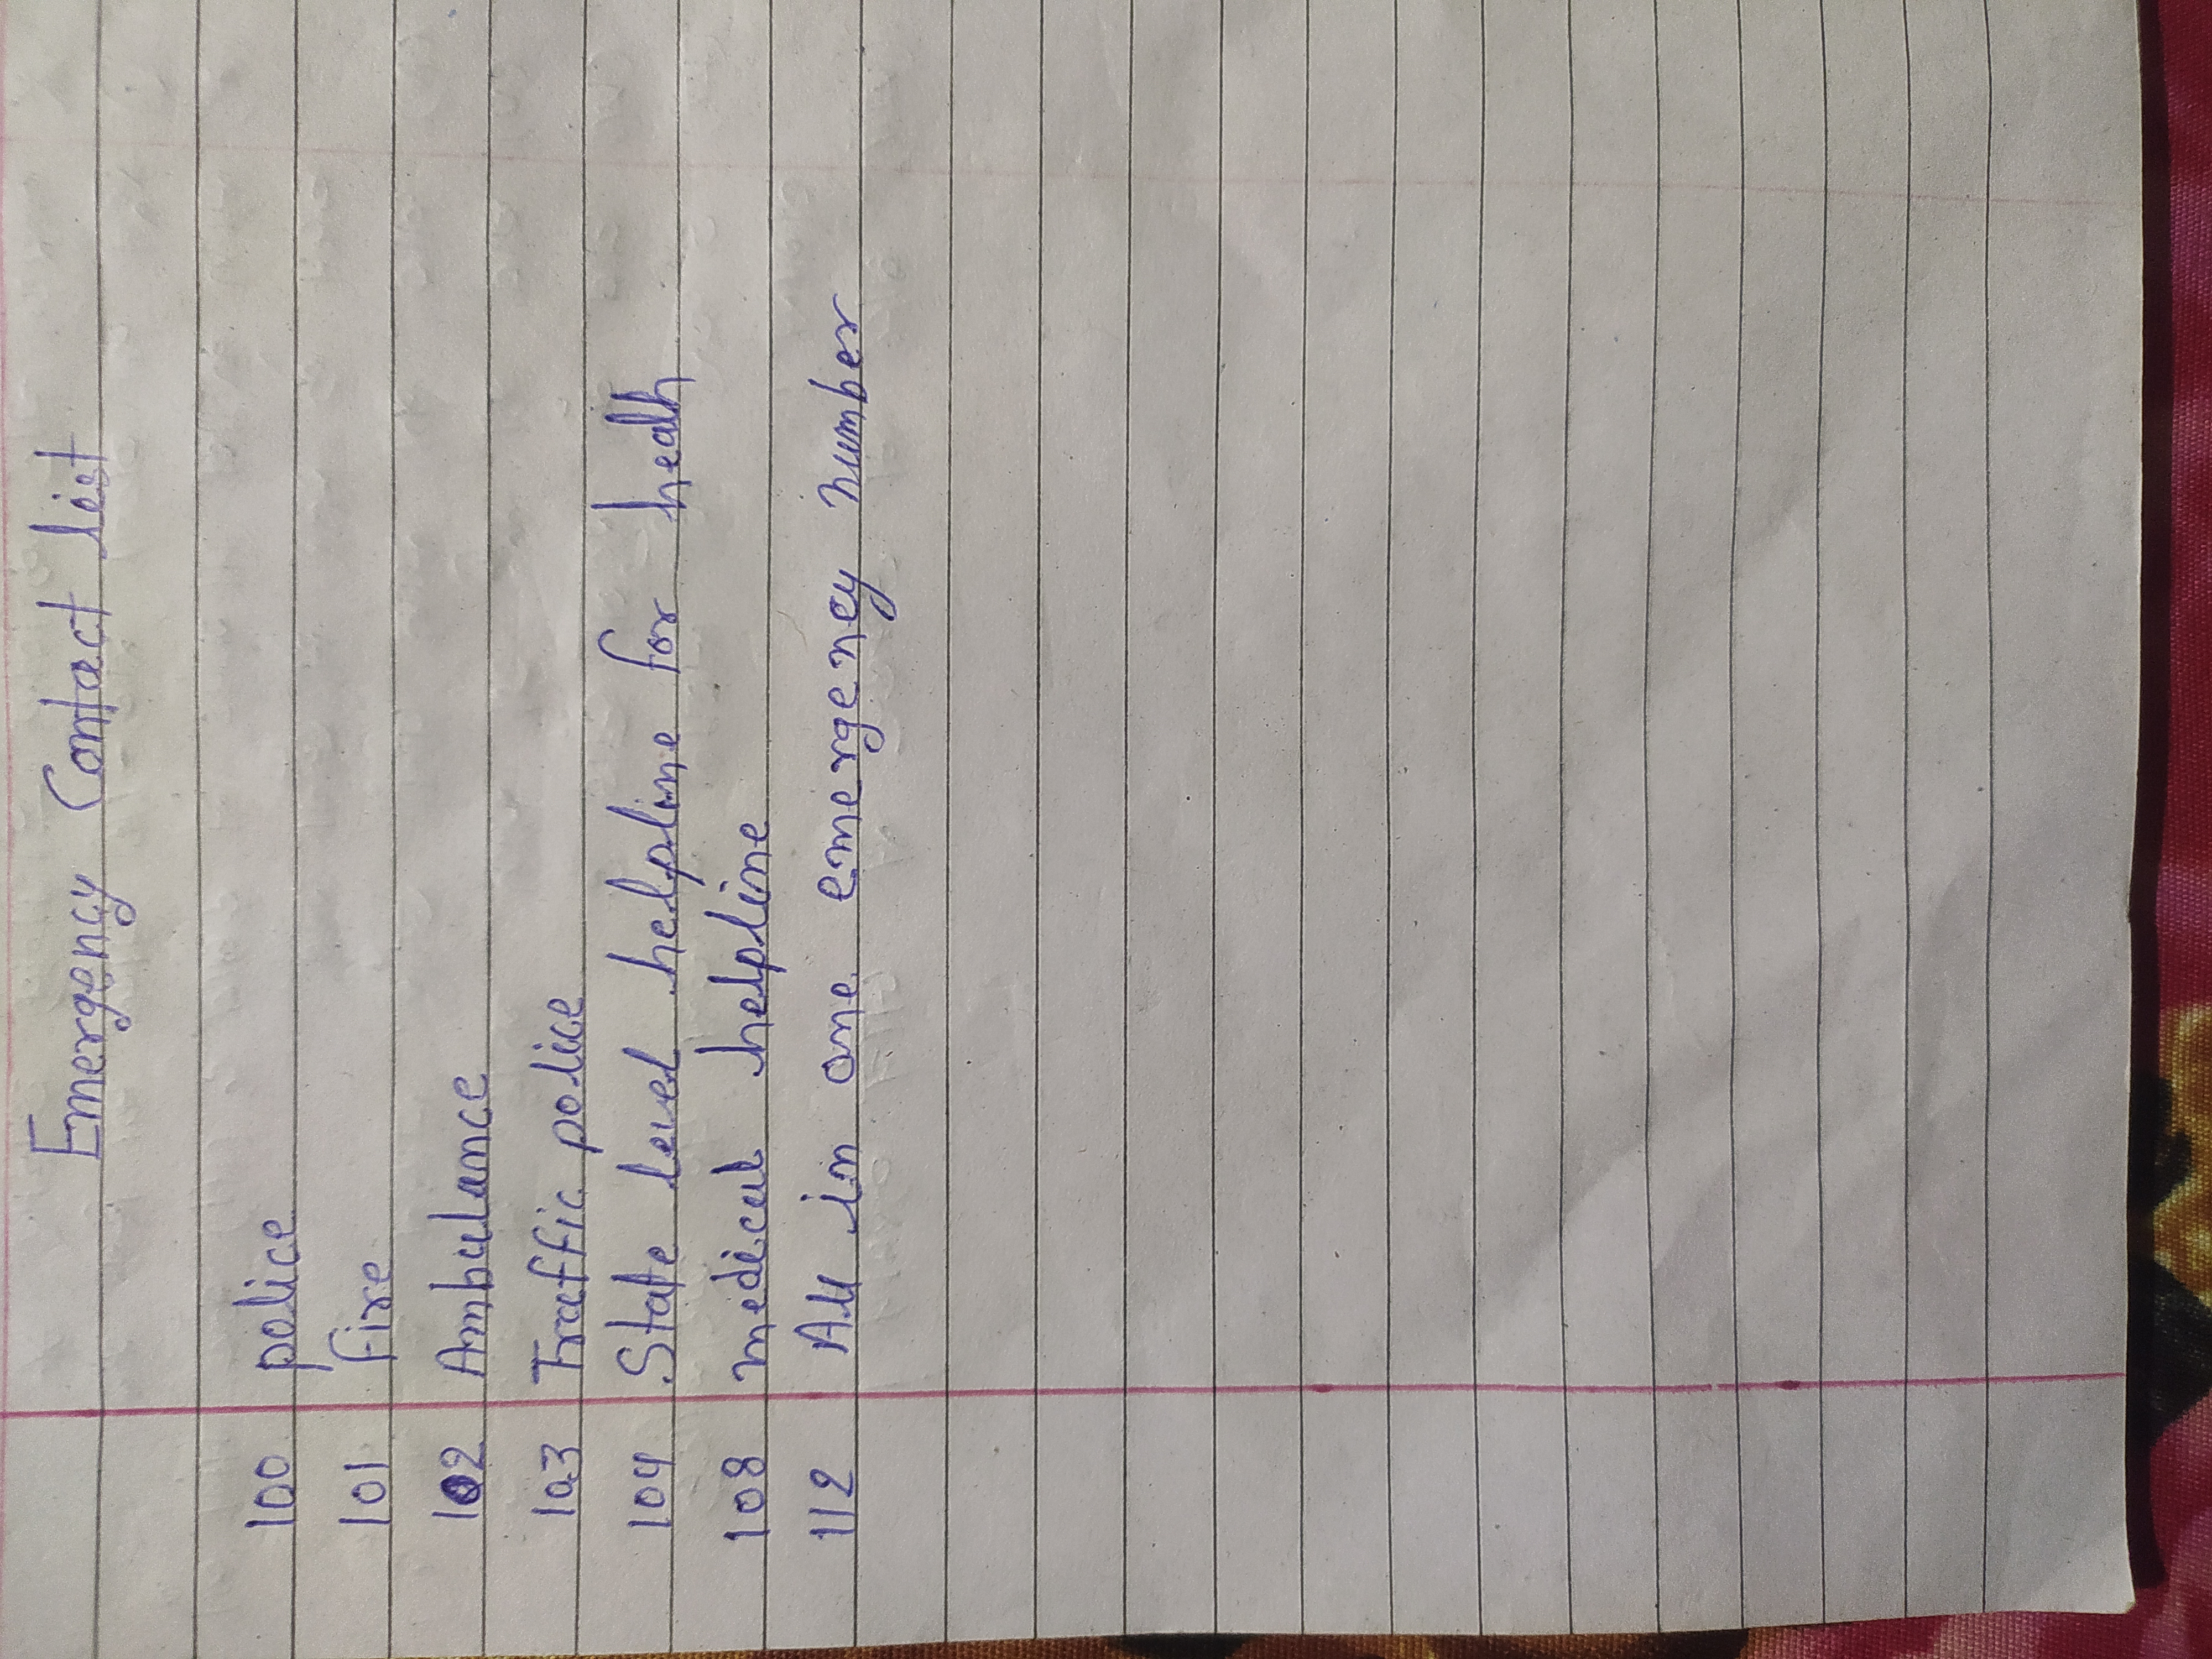 Emergency Contact list
100 police
101 fire
102 Ambulance
103 Traffic police
104 State level helpline for health
108 medical helpline
112 All in one emergency number